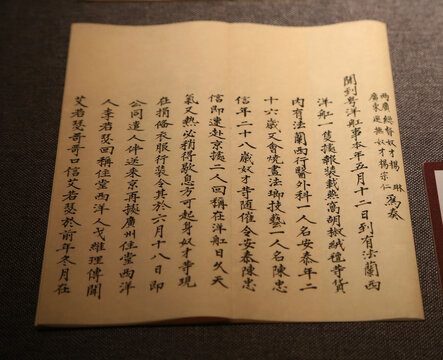 兩廣總督奴才楊琳
廣東巡撫奴才楊宗仁為奏
聞到粵洋舡事本年五月十二日到有法蘭西
洋舡一隻據報裝載胡椒絨毡等貨
內有法蘭西行醫外科一人名安泰年二
十六歲又會燒畫法瑯技藝一人名陳忠
信年二十八歲奴才等隨催令安泰陳忠
信即速赴京據二人回稱在洋舡日久天
氣又熱必稍得歇息方可起身奴才等現
在捐備衣服行裝令其於六月十八日即
公同遣人伴送來京再據廣州住堂西洋
人李若瑟回稱住堂西洋人戈維理傳聞
艾若瑟哥哥口信艾若瑟於前年冬月在